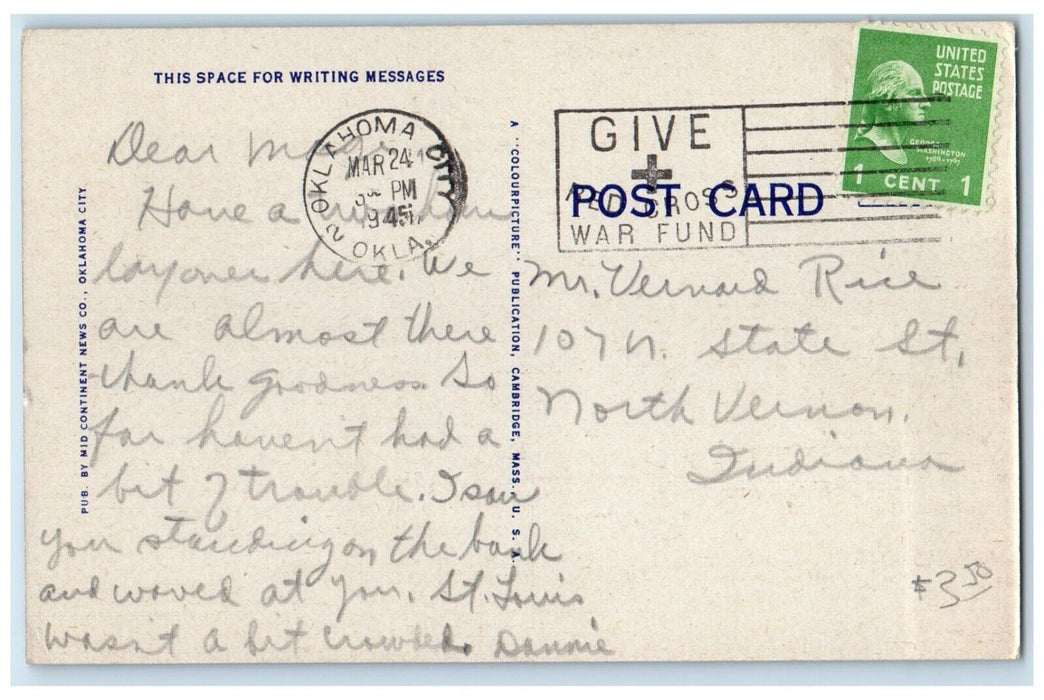 THIS SPACE FOR WRITING MESSAGES
UNITED
STATES
POSTAGE
GEORGE
WASHINGTON
1789-1797
1 CENT 1
OKLAHOMA CITY
MAR 24
PM
1945
2 OKLA.
GIVE
RED CROSS
WAR FUND
POST CARD
PUB. BY MID CONTINENT NEWS CO., OKLAHOMA CITY
A "COLOURPICTURE" PUBLICATION, CAMBRIDGE, MASS., U. S. A.
Dear
Have a
layover here. We
are almost there
thank goodness. So
far haven't had a
bit of trouble. I saw
you standing on the bank
and waved at you. St. Louis
wasn't a bit crowded. Dannie
Mr. Vernard Rice
107 N. State St.
North Vernon.
Indiana
$3.50